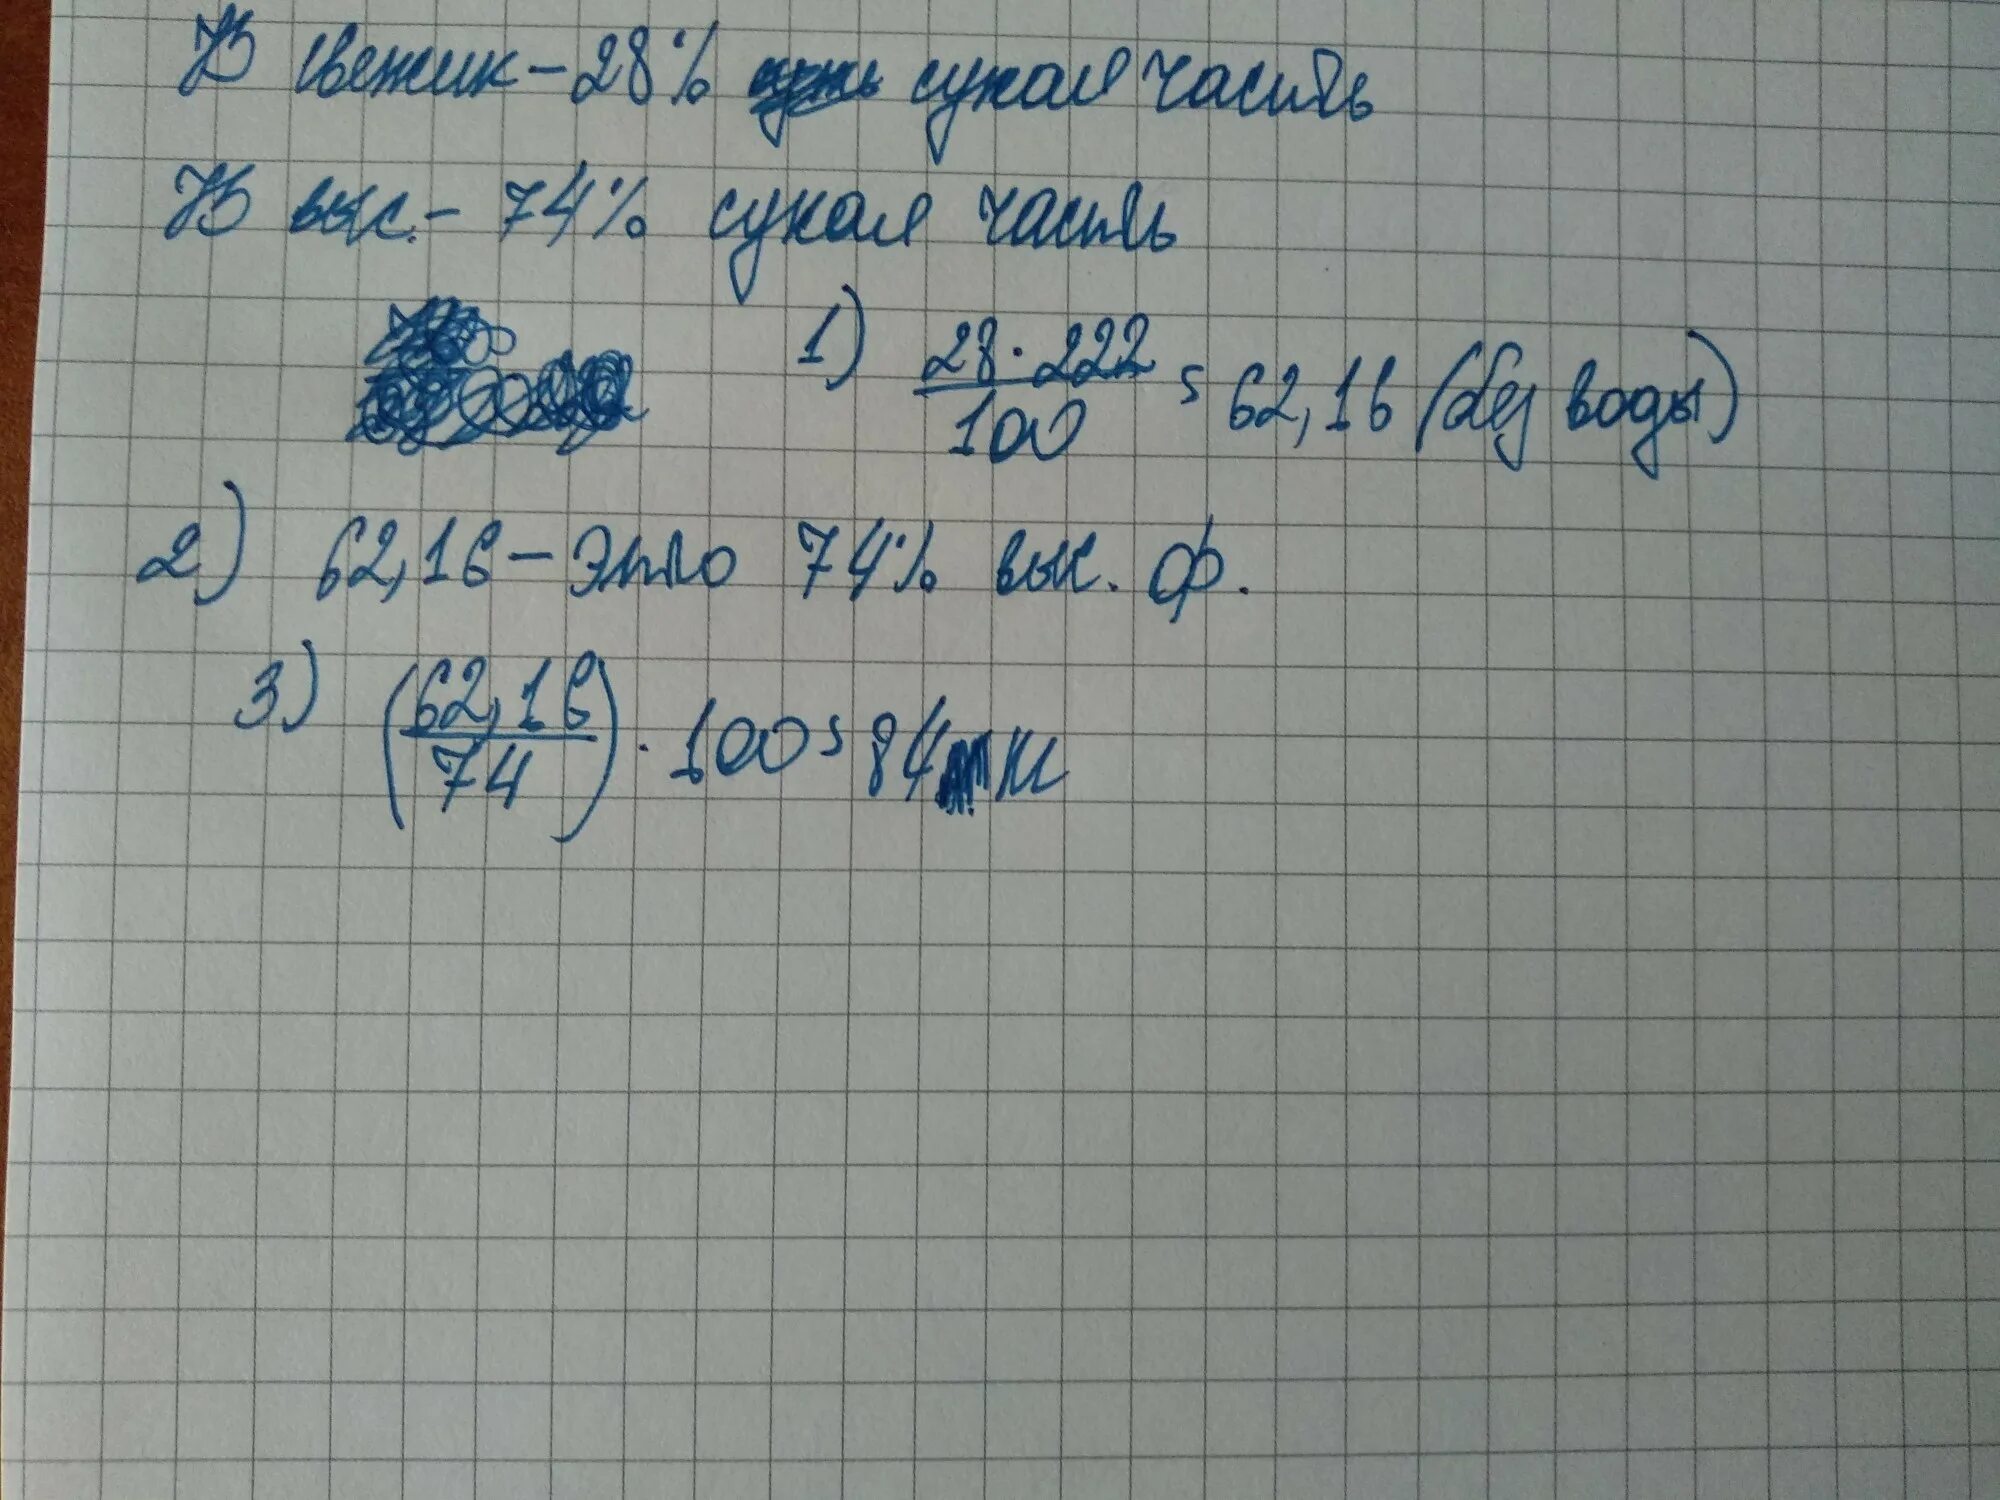 В свежих - 28% сухая часть
В выс. - 74% сухая часть
1) 28·222/100 = 62,16 (без воды)
2) 62,16 - это 74% выс. ф.
3) (62,16/74) · 100 = 84 кг